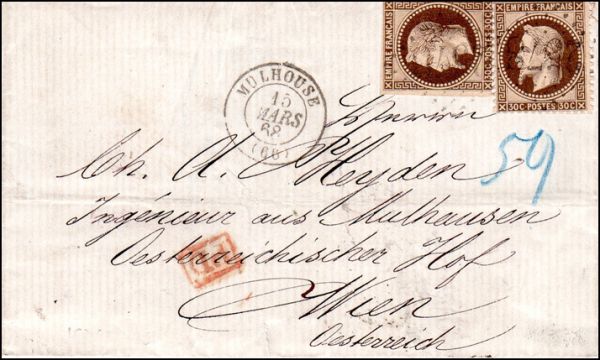 EMPIRE FRANÇAIS
30C POSTES 30C
EMPIRE FRANÇAIS
30C POSTES 30C
MULHOUSE
15
MARS
68
(66)
Herrn
Ch. A. Heyden
59
Ingénieur aus Mulhausen
Oesterreichischer Hof
PD
Wien
Oesterreich